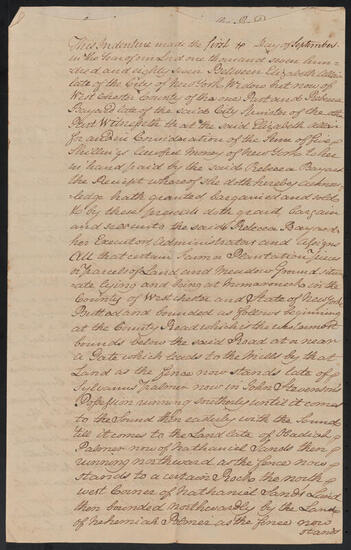 This Indenture made the first Day of September
in the Year of our Lord one thousand seven hun
dred and eighty seven Between Elizabeth
late of the City of New York Widow but now of
West Chester County of the one Part and Rebecca
Bayard late of the said City Spinster of the other
Part Witnesseth that the said Elizabeth
for and in Consideration of the Sum of five
Shillings lawfull Money of New York to her
in hand paid by the said Rebecca Bayard
the Receipt whereof She doth hereby acknow
ledge hath granted bargained and sold
& by these presents doth grant bargain
and sell unto the said Rebecca Bayard
her Executors Administrators and Assigns
All that certain Farm or Plantation piece
or parcels of Land and Meadow Ground situ
ate lying and being at Mamaroneck in the
County of Westchester and State of New York
Butted and bounded as follows beginning
at the County Road which is the
bounds below the said Road at or near
a Gate which leads to the Mills by that
Land as the fence now stands late of
Sylvanus Palmer now in John Stevenson's
Possession running Southerly until it comes
to the Sound then easterly with the Sound
till it comes to the Land late of
Palmer now of Nathaniel Sands then
running northward as the fence now
stands to a certain Rock the north
west Corner of Nathaniel Sands Land
then bounded northwardly by the Land
of Nehemiah Palmer as the fence now
stands